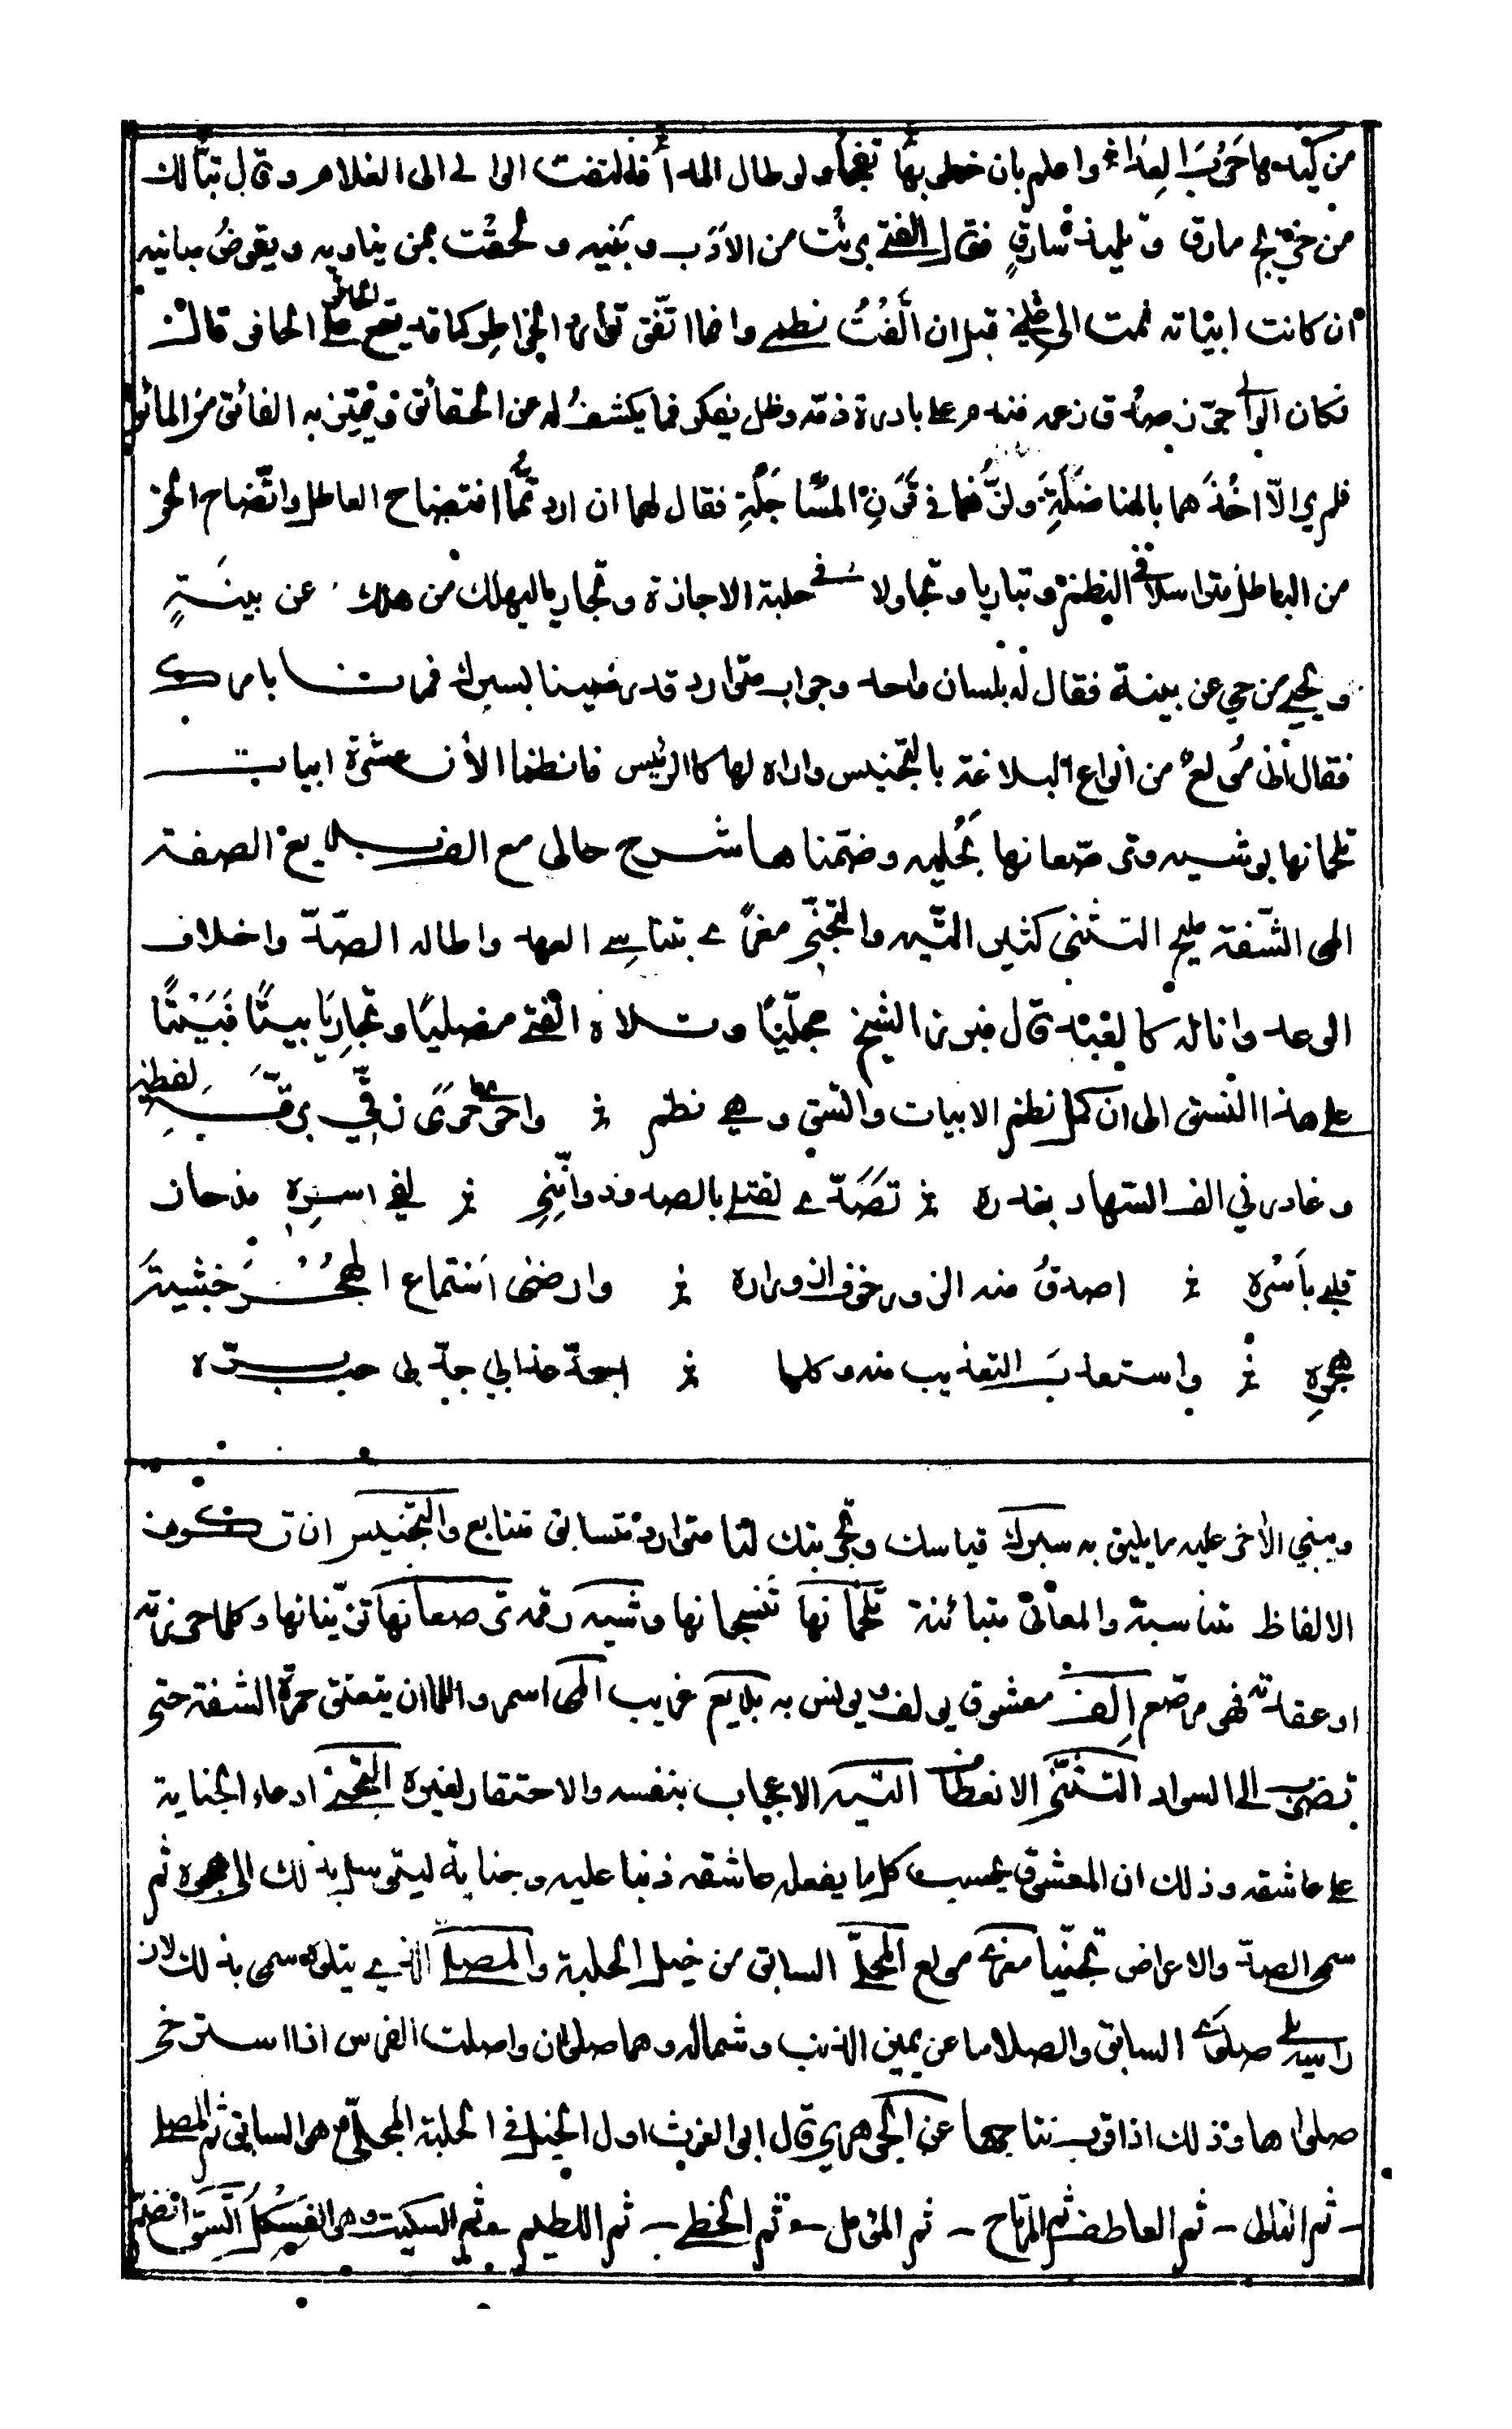 من كيدها حرب العدا واعلم بان خطوبها تفجأ ولو طال المدا فالتفت الوالي الى الغلام وقال تبا لك
من خريج مارق وتلميذ سارق فقال الفتى برئت من الأدب وبنيه ولحقت بمن يناويه ويقوض مبانيه
ان كانت ابياته نمت الى علمي قبل ان الّفتُ نظمي وانما اتّفق توارد الخواطر كما قد يقع الحافر على الحافر قال
فكان الوالي جوز صدق زعمه فندم على بادرة ذمّه وظل يفكر فيما يكشف له عن الحقائق ويميّز به الفائق من المائق
فلم ير الّا اخذهما بالمناضلة ولزّهما في قرن المساجلة فقال لهما ان اردتما افتضاح العاطل واتّضاح الحق
من الباطل فتراسلا في النظم وتباريا وتجاولا في حلبة الاجازة وتجاريا ليهلك من هلك عن بينة
ويحيي من حي عن بينة فقال له بلسان واحد وجواب متوارد قد رضينا بسبرك فمرنا بامرك
فقال اني مولع من انواع البلاغة بالتجنيس واراه لها كالرئيس فانظما الأن عشرة ابيات
تلحمانها بوشيه وترصعانها بحليه وضمناها شرح حالى مع الف بديع الصفة
المى الشّفة مليح التثني كثير التيه والتجني مغرى بتناسي العهد واطالة الصّدّ واخلاف
الوعد وانا له كالعبد قال فبرز الشيخ مجلّيًا وتلاه الفتى مصليًا وتجاريا بيتًا فبيتًا
على هذا النسق الى ان كمل نظم الابيات واتسق وهي نظم واحوى حوى رقّي برقّة لفظه
وغادرني الف السهاد بغدره تصدّى لقتلي بالصدود وانّني لفي اسره مذ حاز
قلبي باسره اصدق منه الزور خوف ازوراره وارضى استماع الهجر خشية
هجره واستعذب التعذيب منه وكلما اجدّ عذابي جدّ بي حب برّه
ويبني الأخر عليه ما يليق به سبرك قياسك وتجربتك لنا متوارد متسابق متتابع والتجنيس ان تكون
الالفاظ متناسبة والمعانى متبائنة تلحمانها تنسجانها وشيه رقمه ترصعانها تزينانها وكلما حرزته
او عقدته فهو مرصّع الف معشوق يولف ويونس به بديع غريب المى اسمر واللما ان يتعلق حمرة الشفة حتى
تضرب الى السواد التثنّي الانعطاف التيه الاعجاب بنفسه والاحتقار لغيره التجنّي ادعاء الجناية
على عاشقه وذلك ان المعشوق يحسب كل ما يفعله عاشقه ذنبا عليه وجناية ليتوسل بذلك الى هجره ثم
سمى الصدّ والاعراض تجنّيا مغرى مولع المجلّي السابق من خيل الحلبة والمصلي الذي يتلوه سمى بذلك لان
راسه يلي صلوى السابق والصلا ما عن يمين الذنب وشماله وهما صلوان واصلت الفرس اذا استرخى
صلواها وذلك اذا قرب نتاجها عن الجوهري قال ابو الغوث اول الخيل في الحلبة المجلّي وهو السابق ثم المصلي
ثم التالى ثم العاطف ثم المرتاح ثم المؤمل ثم الحظي ثم اللطيم ثم السكيت وهو الفسكل اتّسق انضمّ